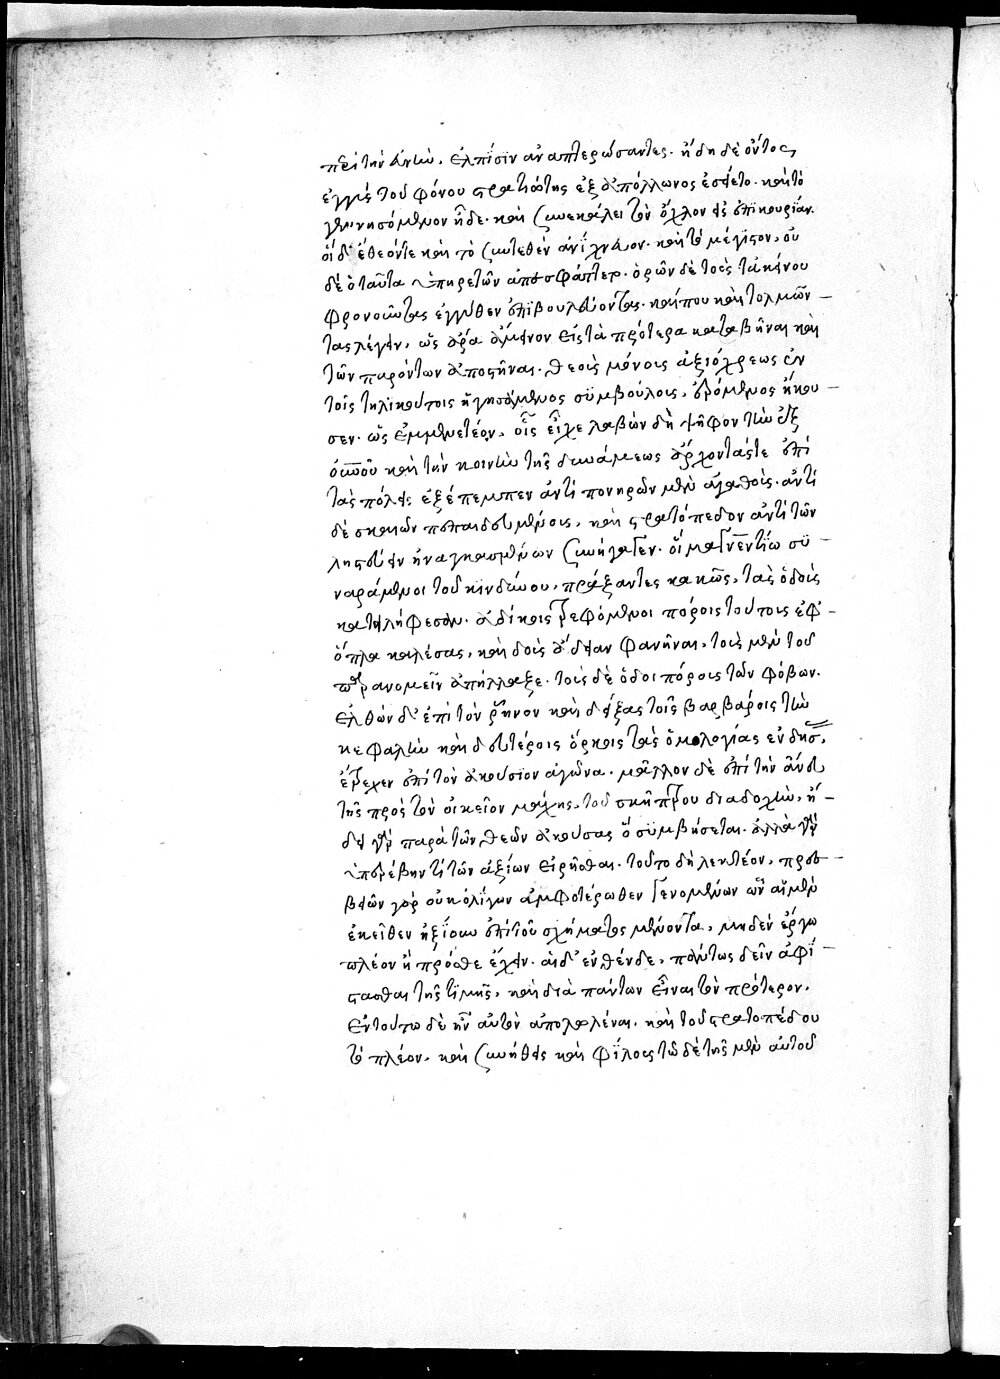 περὶ τὴν ἀκτὴν, ἐλπίσιν ἀναπτερώσαντες. ἤδη δὲ ὄντος
ἐγγὺς τοῦ φόνου στρατιώτης ἐξ ἀπόλλωνος ἐσῄετο. καὶ τὸ
γενησόμενον ᾔδε. καὶ συνεκάλει τὸν ὄχλον εἰς ἐπικουρίαν.
οἱ δ' ἔθεόν τε καὶ τὸ συντεθὲν ἀνίχνευον. καὶ τὸ μέγιστον, οὐ
δὲ ὁ ταῦτα ὑπηρετῶν ἀπεσφάττετο. ὁρῶν δὲ τοὺς τἀκείνου
φρονοῦντας ἐγγύθεν ἐπιβουλεύοντας. καί που καὶ τολμῶν
τας λέγειν, ὡς ἄρα ἄμεινον εἰς τὰ πρότερα καταβῆναι καὶ
τῶν παρόντων ἀποστῆναι. θεοὺς μόνους ἀξιόχρεως ἐν
τοῖς τηλικούτοις ἡγησάμενος συμβούλους, ἐρόμενος ἤκου
σεν. ὡς ἐμμενετέον, οἷς εἶχε λαβὼν δὴ ψῆφον τὴν ἐξ
ὀ οὐ καὶ τὴν κοινὴν τῆς δυνάμεως ἄρχοντάς τε ἐπὶ
τὰς πόλεις ἐξέπεμπεν ἀντὶ πονηρῶν μὲν ἀγαθοὺς. ἀντὶ
δὲ σκαιῶν πεπαιδευμένους, καὶ στρατόπεδον ἀντὶ τῶν
λῃστεύειν ἠναγκασμένων συνήγαγεν. οἳ μαγνεντίῳ συ
ναράμενοι τοῦ κινδύνου, πράξαντες κακῶς, τὰς ὁδοὺς
κατειλήφεσαν. ἀδίκοις τρεφόμενοι πόροις τούτους ἐφ'
ὅπλα καλέσας, καὶ δοὺς ἄδειαν φανῆναι, τοὺς μὲν τοῦ
παρανομεῖν ἀπήλλαξε. τοὺς δὲ ὁδοιπόρους τῶν φόβων.
ἐλθὼν δ' ἐπὶ τὸν ῥῆνον καὶ δείξας τοῖς βαρβάροις τὴν
κεφαλὴν καὶ δευτέροις ὅρκοις τὰς ὁμολογίας ἐνδήσ
ἔτρεχεν ἐπὶ τὸν ἀκούσιον ἀγῶνα. μᾶλλον δὲ ἐπὶ τὴν ἄνευ
τῆς πρὸς τὸν οἰκεῖον μάχης, τοῦ σκήπτρου διαδοχὴν, ᾔ
δει γὰρ παρὰ τῶν θεῶν ἀκούσας ὃ συμβήσεται. ἀλλὰ γὰρ
ὑπερέβην τὶ τῶν ἀξίων εἰρῆσθαι. τοῦτο δὴ λεκτέον, πρεσ
βειῶν γὰρ οὐκ ὀλίγων ἀμφοτέρωθεν γενομένων ὧν αἱ μὲν
ἐκεῖθεν ἠξίουν ἐπὶ τοῦ σχήματος μένοντα, μηδὲν ἔργῳ
πλέον ἢ πρόσθε ἔχειν. αἱ δ' ἐνθένδε, πάντως δεῖν ἀφί
στασθαι τῆς τιμῆς, καὶ διὰ πάντων εἶναι τὸν πρότερον.
ἐν τούτῳ δὲ ἦν αὐτὸν ἀπολωλέναι. καὶ τοῦ στρατοπέδου
τὸ πλέον. καὶ συνήθεις καὶ φίλους τῷ δὲ τῆς μὲν αὐτοῦ